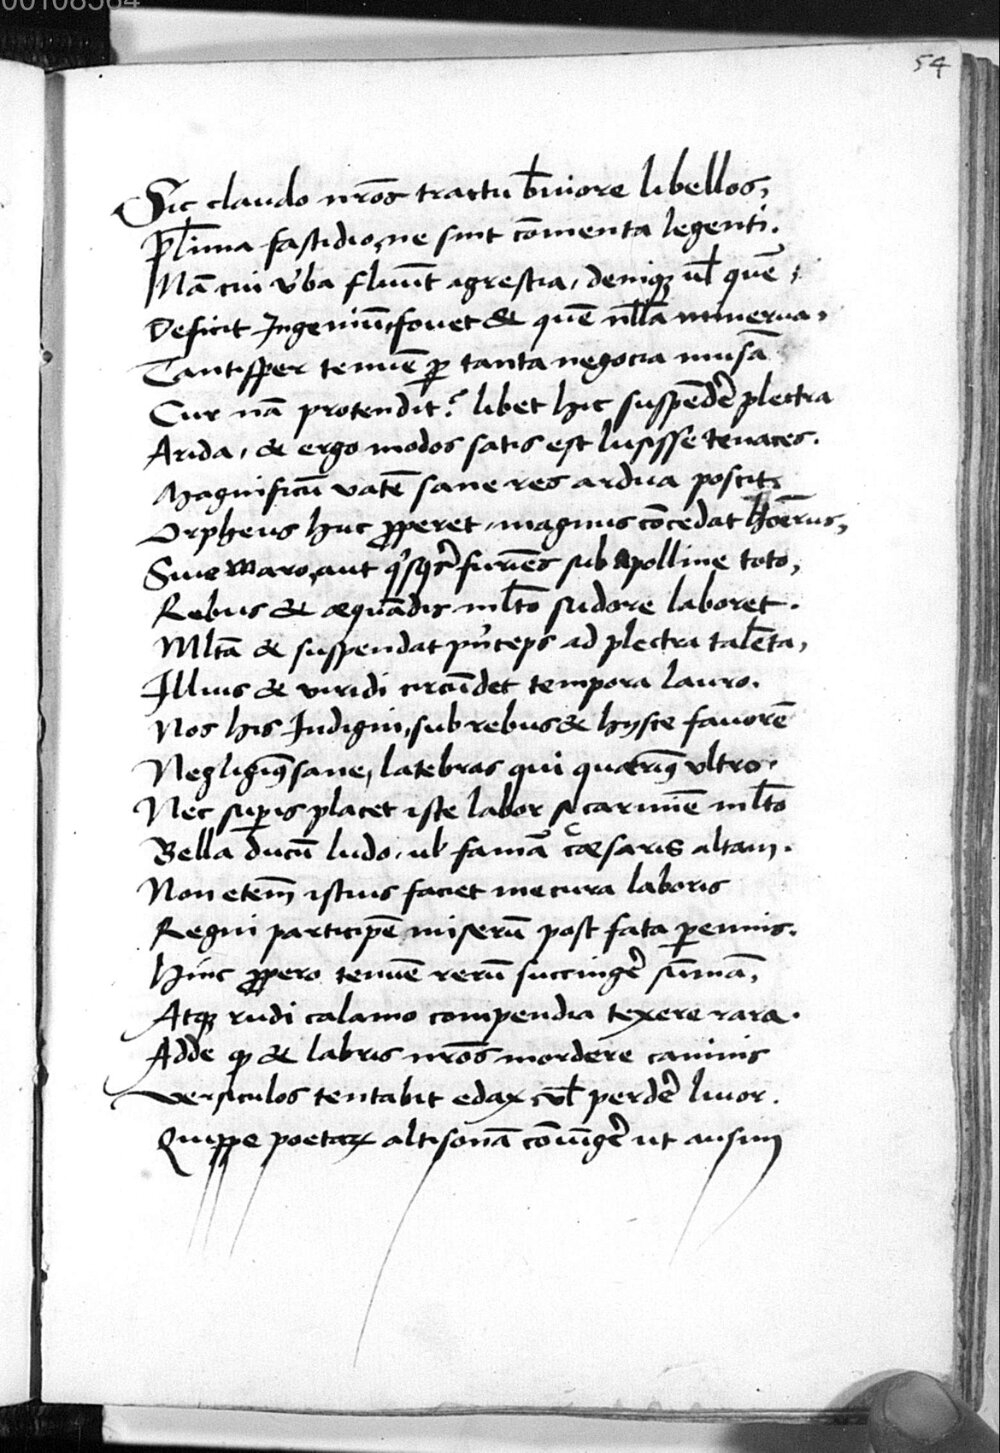 00108564
54
Sic claudo nr̄os tractu b̄uiore libellos,
Pl̄ima fastidio, ne sint cōmenta legenti.
Nā cui v̄ba fluūt agrestia, deniqꝫ ul̄ quē,
Deficit Ingeniū, fouet & quē nl̄la minerua,
Tantisper tenuē ꝑ tanta negocia musā
Cur nā protendit? libet hic suspēdē plectra
Arida, & ergo modos satis est lusisse tenaces.
Magnificū vatē sane res ardua poscit
Orpheus huc ꝓperet, magnus cōcedat Hoērus,
Siue Maro, aut furiēs sub Apolline toto,
Rebus & æquādis ml̄to sudore laboret.
Ml̄ta & suspendat pn̄ceps ad plectra talēta,
Illius & viridi circūdet tempora lauro.
Nos his Indigni, sub rebus & hysce fauorē
Negligimꝰ sane, latebras qui quærimꝰ vltro.
Nec suꝑis placet iste labor si carmīe ml̄to
Bella ducū ludo, ul̄ famā cæsaris altam.
Non etem̄ istius faciet me cura laboris
Regni participē miserū post fata ꝑennis.
Hinc ꝓpero tenuē rerū succingē sūmā,
Atqꝫ rudi calamo compendia texere rara.
Adde ꝙ & labris nr̄os mordere caninis
Versiculos tentabit edax ul̄ perdē liuor.
Quippe poetaꝝ altisonā cōuīgē ut ausim